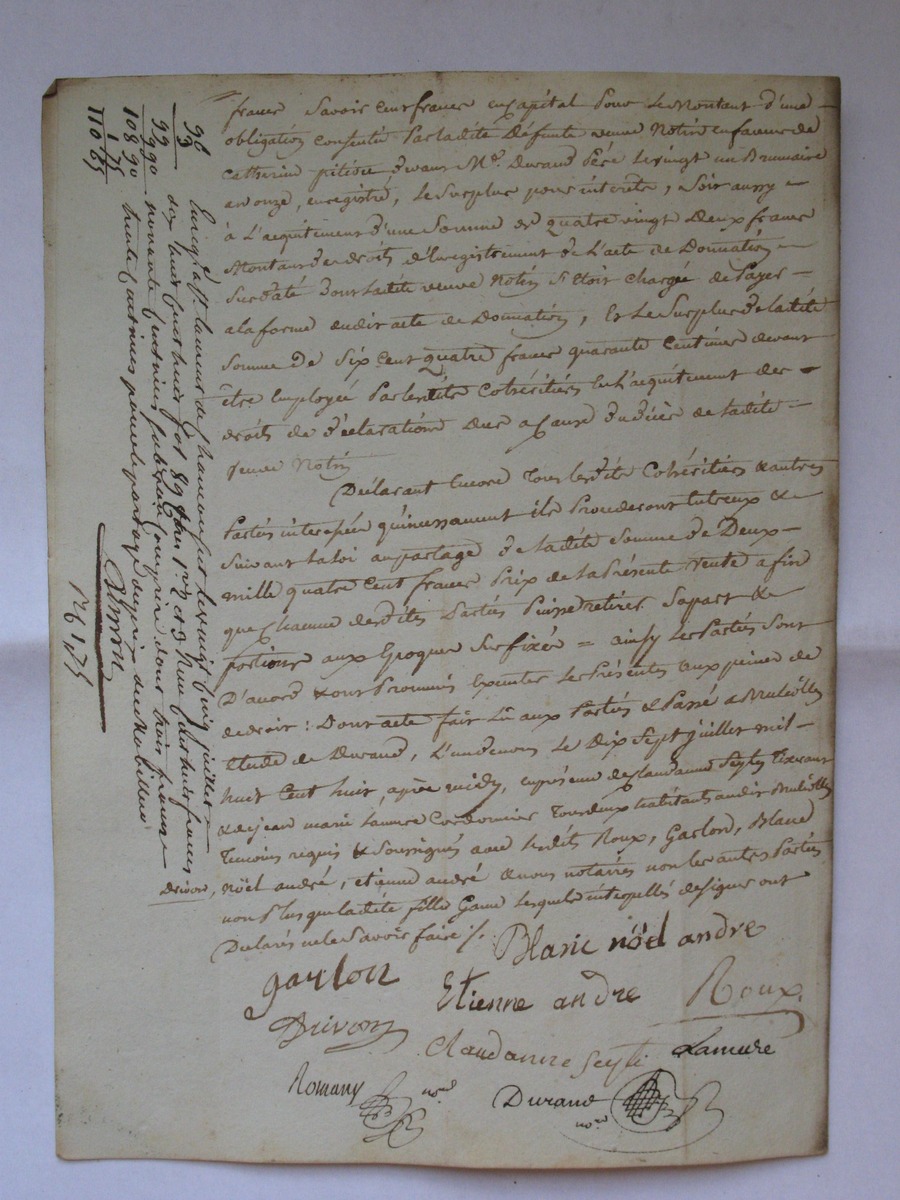 francs Savoir Cent francs en Capital Pour Le Montant d'une
obligation Consentie Par ladite Défunte veuve Notin en faveur de
Catherine devant Me. Durand Père le vingt un Brumaire
an onze, enregistré, Le Surplus pour intérêts, Soit aussy
à L'acquittement d'une Somme de quatre vingt Deux francs
Montant des droits d'Enregistrement de L'acte de Donnation
Surdaté dont Ladite veuve Notin S'étoit Chargée de Payer
a la forme dudit acte de Donnation, Et Le Surplus de ladite
Somme de Six Cent quatre francs quarante Centimes devant
être Employée Par lesdits Cohéritiers En L'acquittement des
droits de déclaration Dus a Cause du décès de ladite
veuve Notin
Déclarant Encore Tous lesdits Cohéritiers & autres
Parties qu'incessament ils Procéderont entreux &
Suivant la loi au partage de ladite Somme de Deux
mille quatre Cent francs Prix de la Présente vente afin
que Chacune desdites Parties Puisse retirer Sa part &
portions aux Epoques Sus fixées = ainsy Les Parties Sont
D'accord & ont Promis Exécuter Les Présentes aux peines de
de droit : Dont acte fait Lû aux Parties & Passé a
Etude de Durand, L'un de nous Le Dix Sept juillet mil
huit Cent huit, après midy, en présence de Claudanne Seytre
& de jean marie Lamure Cordonnier Tous deux habitants audit
Temoins requis & Soussignés avec lesdits Roux, Gaylon, Blanc
Drivon, noël andré, etienne andré & nous notaires non les autres Parties
non Plus que ladite fille Game Lesquels interpellés de signer ont
Déclarés ne le Savoir faire /.
Blanc noël andre
gaylon Etienne andre Roux
Drivon
Claudanne Lamure
Romany nore
Durand nore
96
93
92 90
108 90
1 75
110 65
Enregt. a St. laurent de chamousset le vingt Cinq juillet
dix huit Cent huit fol 89 1re et 3 Reçu
nonante Centimes
trente Centimes pour le partage du prix du Mobillier
176 175